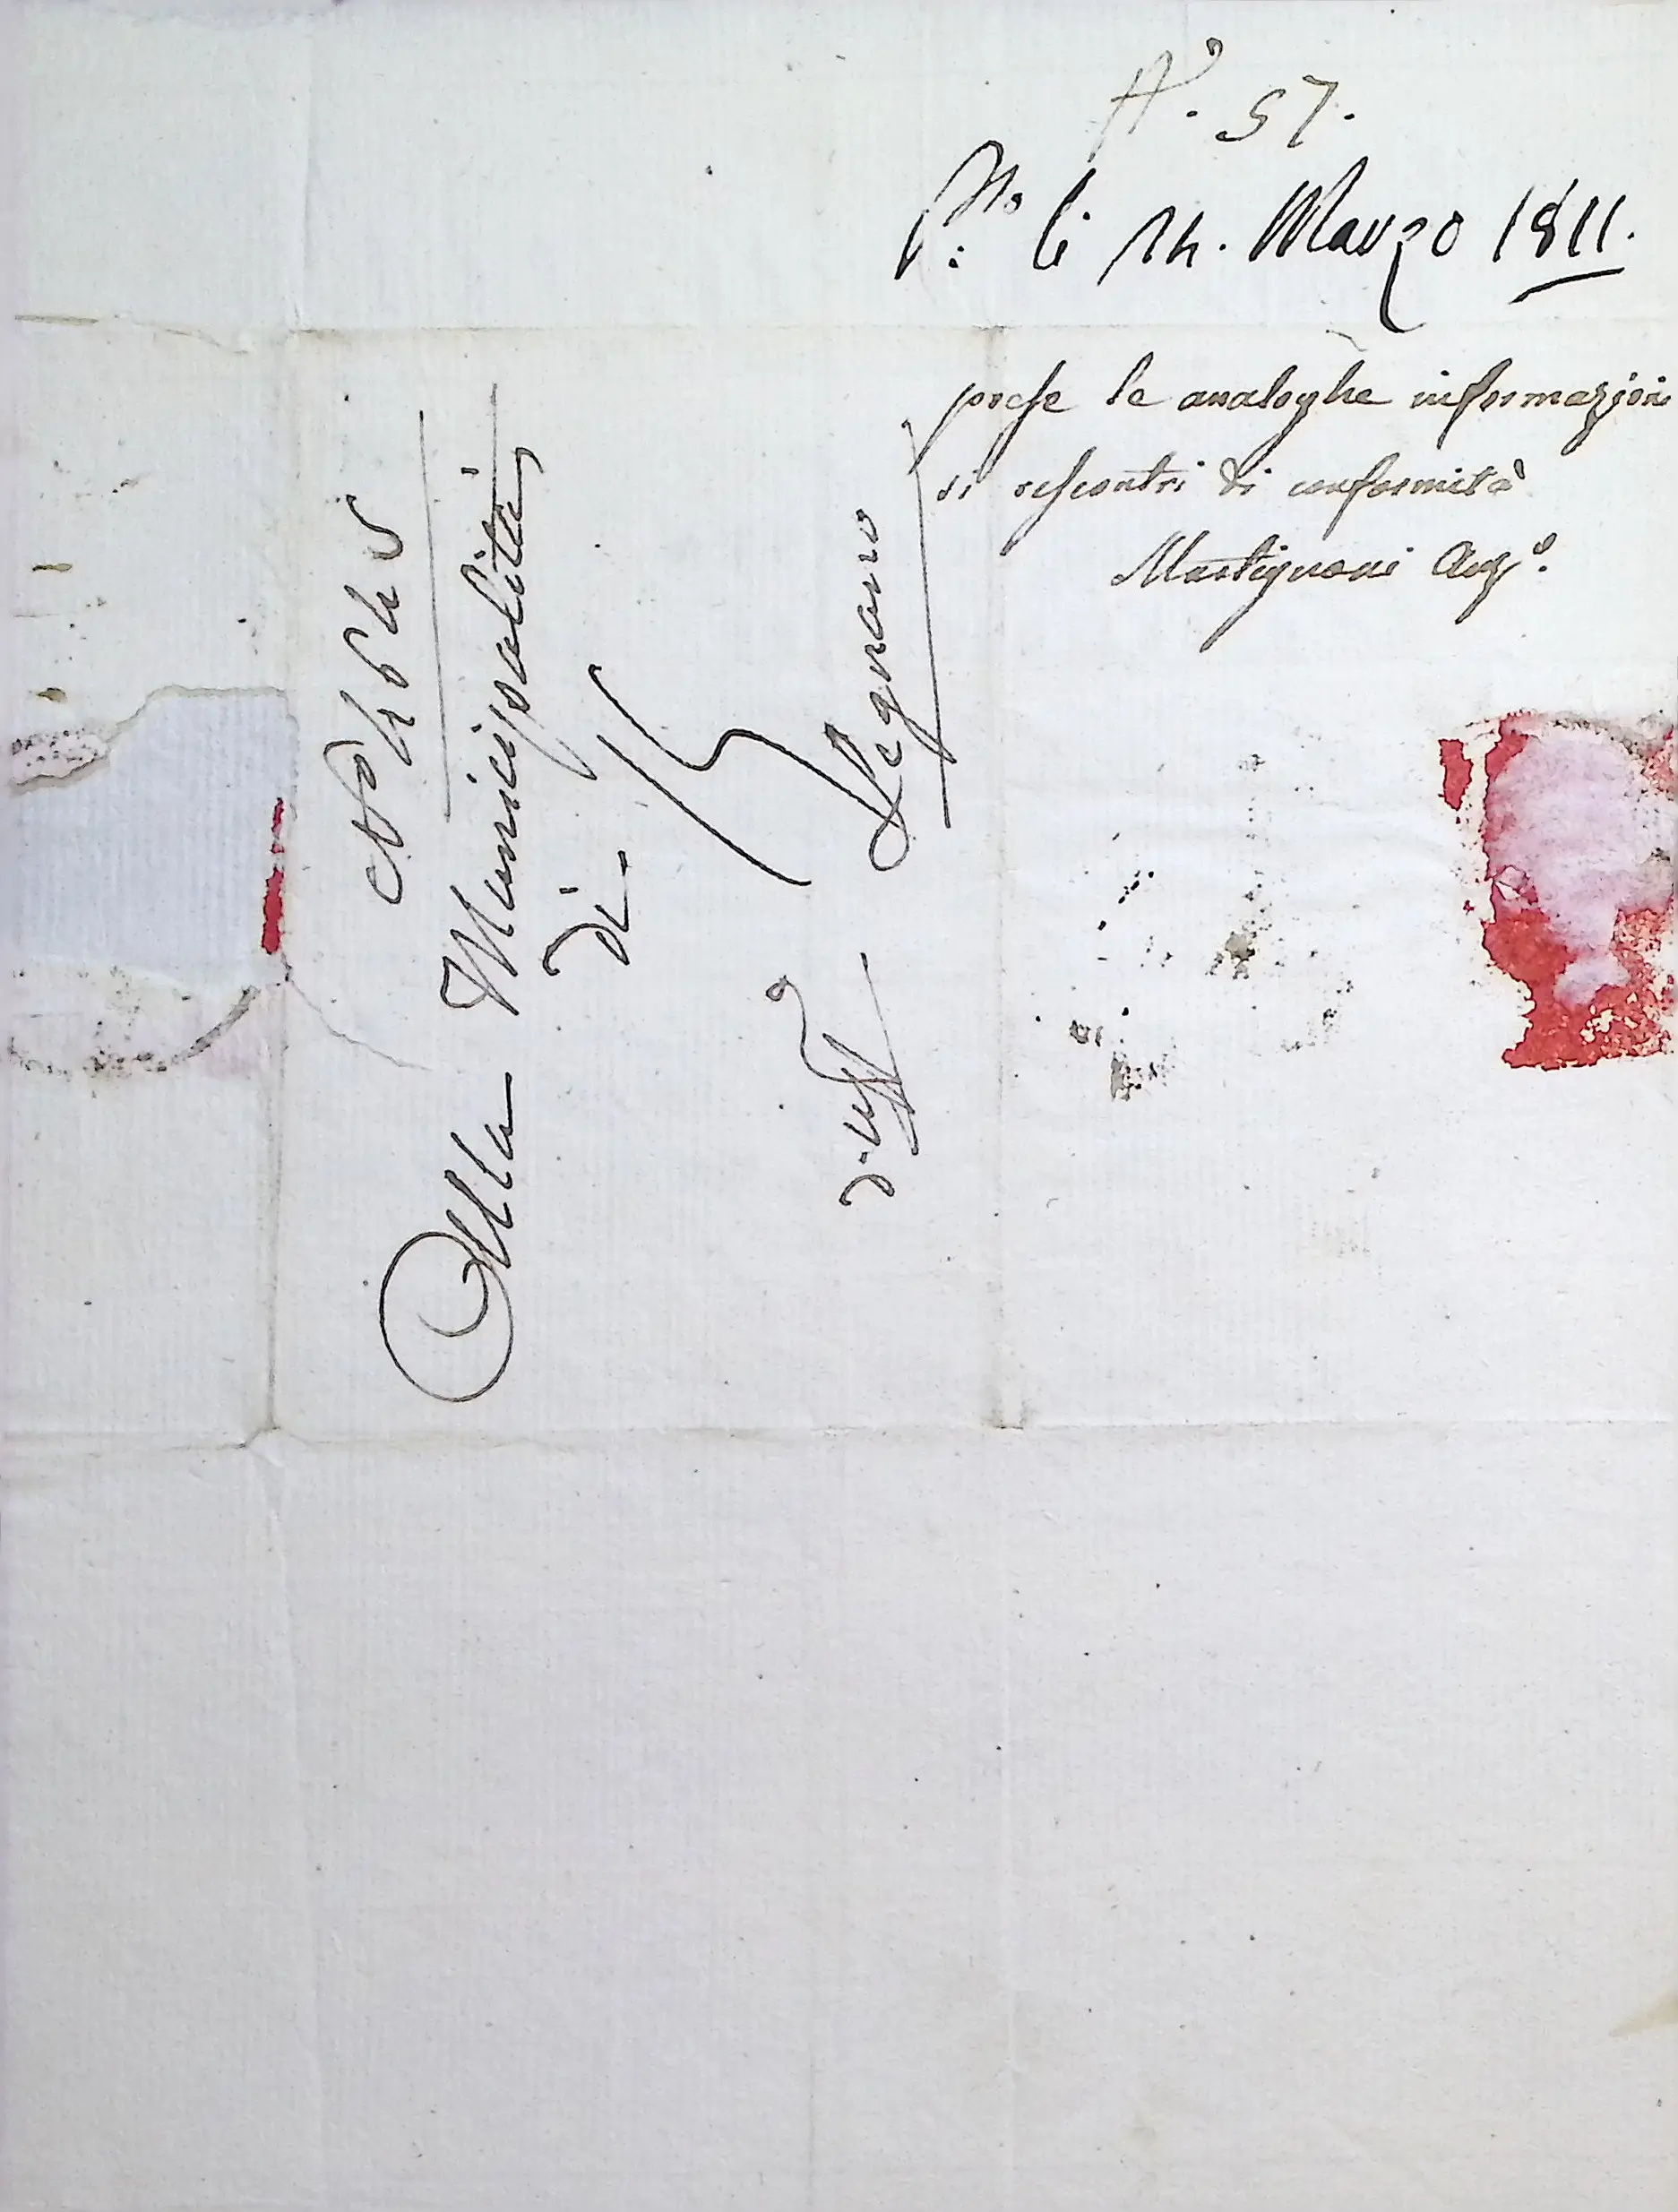 N.° 57.
P.to li 14. Marzo 1811.
prese le analoghe informazioni
si riscontri di conformità
Martignoni Ag.°
N.° 4645
Alla Municipalità
di
d'uff.°
Legnano